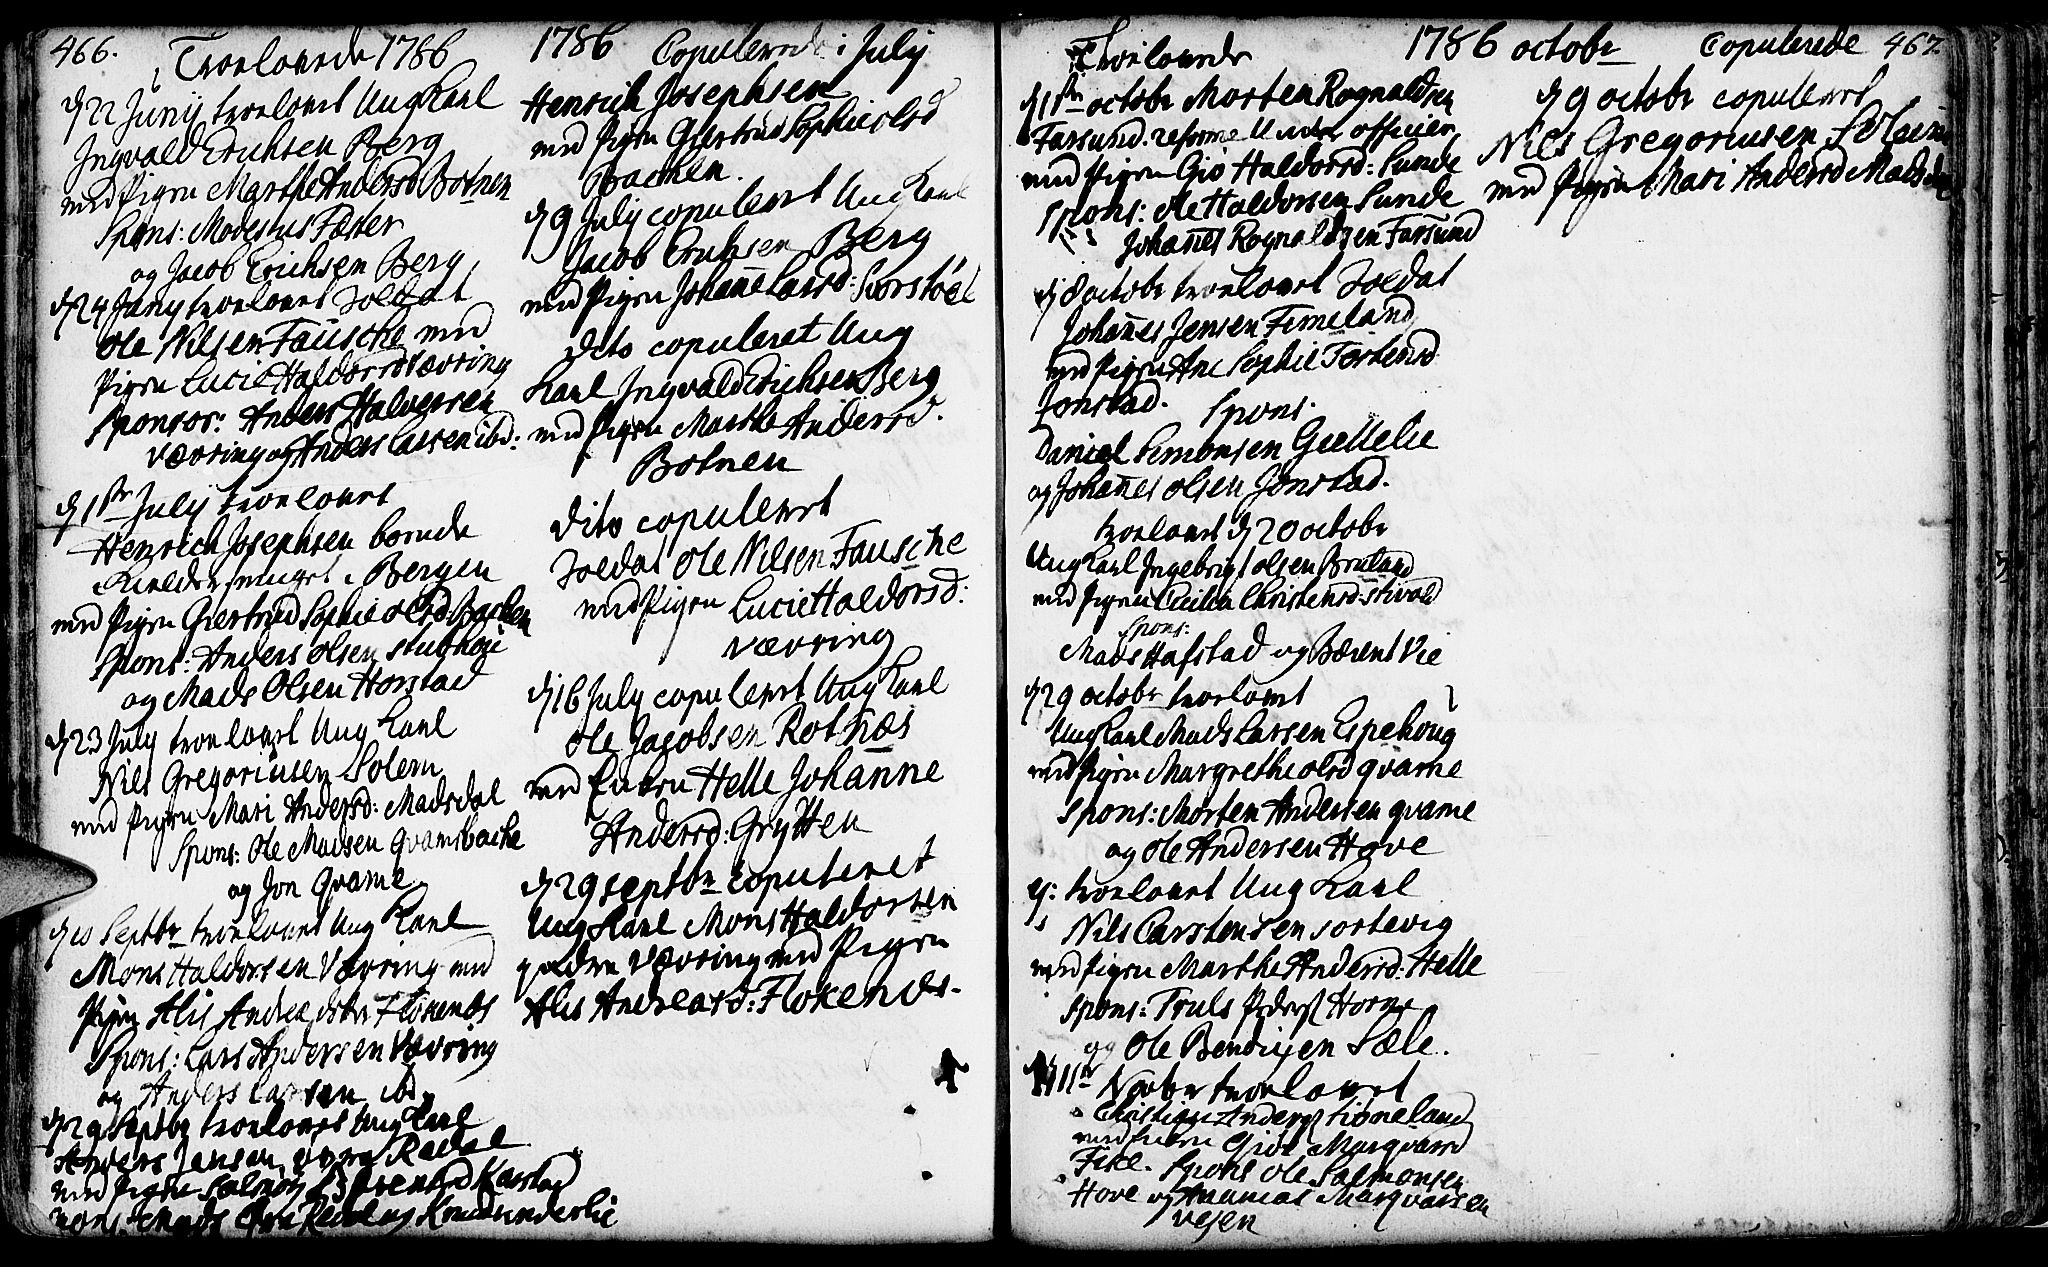 466.
Troelovede 1786
d 22 Junij troelovet Ung Karl
Ingvald Erichsen Berg
med Pigen Marthe Andersd Botnen
Spons: Modestus Fæster
og Jacob Erichsen Berg
d 24 Juny troelovet Soldat
Ole Nilsen Fausche med
Pigen Lucie Haldorsd Værring
Sponsor: Anders Halvorsen
Værring og Anders Larsen ibd:
d 1ste July troelovet
Henrich Josephsen
Bergen
med Pigen Giertrud Sophie Olsd: Bachen
Spons: Anders Olsen Stubhøi
og Mads Olsen Horstad
d 23 July troelovet Ung Karl
Niels Gregoriusen Solem
med Pigen Mari Andersd: Madsdal
Spons: Ole Madsen Qvamsbache
og Jon Qvame
d 10 Septbr troelovet Ung Karl
Mons Haldorsen Værring med
Pigen Alis Andrea
Spons: Lars Andersen Værring
og Anders Larsen ibd
d 29 Septbr troelovet Ung Karl
Anders Jansen
med Pigen
1786 Copulerede i July
Henrich Josephsen
med Pigen Giertrud Sophie Olsd
Bachen.
d 9 July copuleret Ung Karl
Jacob Erichsen Berg
med Pigen Johanne Larsd:
Dito copuleret Ung
Karl Ingvald Erichsen Berg
med Pigen Marthe Andersd.
Botnen
Dito copuleret
Soldat Ole Nilsen Fausche
med Pigen Lucie Haldorsd:
Værring
d 16 July copuleret Ung Karl
Ole Jacobsen Rotnæs
med Enken Helle Johanne
Andersd: Grytten
d 29 septbr copuleret
Ung Karl Mons Haldorsen
Værring med Pigen
Alis Andreasd: Flokenes.
Troelovede
1786 octobr
Copulerede 467
d 1ste octobr Morten Rognaldsen
Farsund. officier
med Pigen Gio Haldorsd: Sunde
Spons: Ole Haldorsen Sunde
Johannes Rognaldsen Farsund
d 8 octobr troelovet Soldat
Johannes Jensen Fimeland
med Pigen Ane Sophie Torstensd:
Jonstad. Spons:
Daniel Simonsen Giellelie
og Johannes Olsen Jonstad.
troelovet d 20 octobr
Ung Karl Ingebrigt Olsen Bruland
med Pigen Cecilia Christensd:
Spons:
Mads Hafstad og Bærent Vie
d 29 octobr troelovet
Ung Karl Mads Larsen Espehoug
med Pigen Margrethe Olsd Qvame
Spons: Morten Andersen Qvame
og Ole Andersen Hove
d: troelovet Ung Karl
Nils Carstensen Sortevig
med Pigen Marthe Andersd: Helle
Spons: Truls Peders Horne
og Ole Bendixen Sæle.
d 11te Novbr troelovet
Christian Anders
med Enken Giør Marqvarsd
Fixe. Spons Ole Salmonsen
Hove og Marqvarsen
Vefen
d 9 octobr copuleret
Niels Gregoriusen Solem
med Pigen Mari Andersd Madsdal